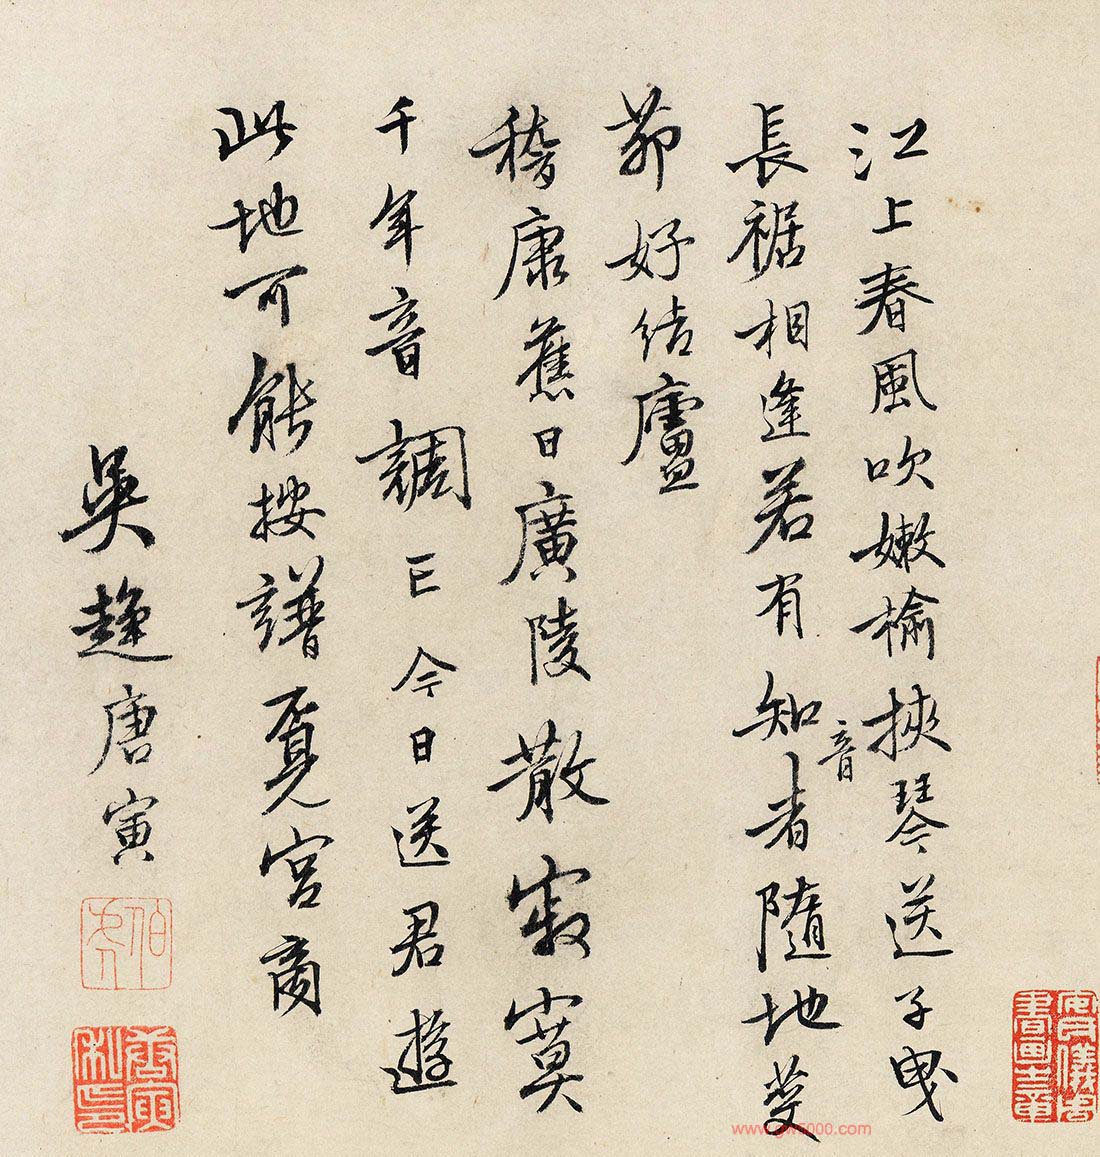 江上春風吹嫩榆挾琴送子曳
長裾相逢若有知音者隨地芟
茆好結廬
稽康舊日廣陵散寂寞
千年音調亡今日送君遊
此地可能按譜覓宮商
吳趨唐寅
伯虎
唐寅私印
www.gw5000.com